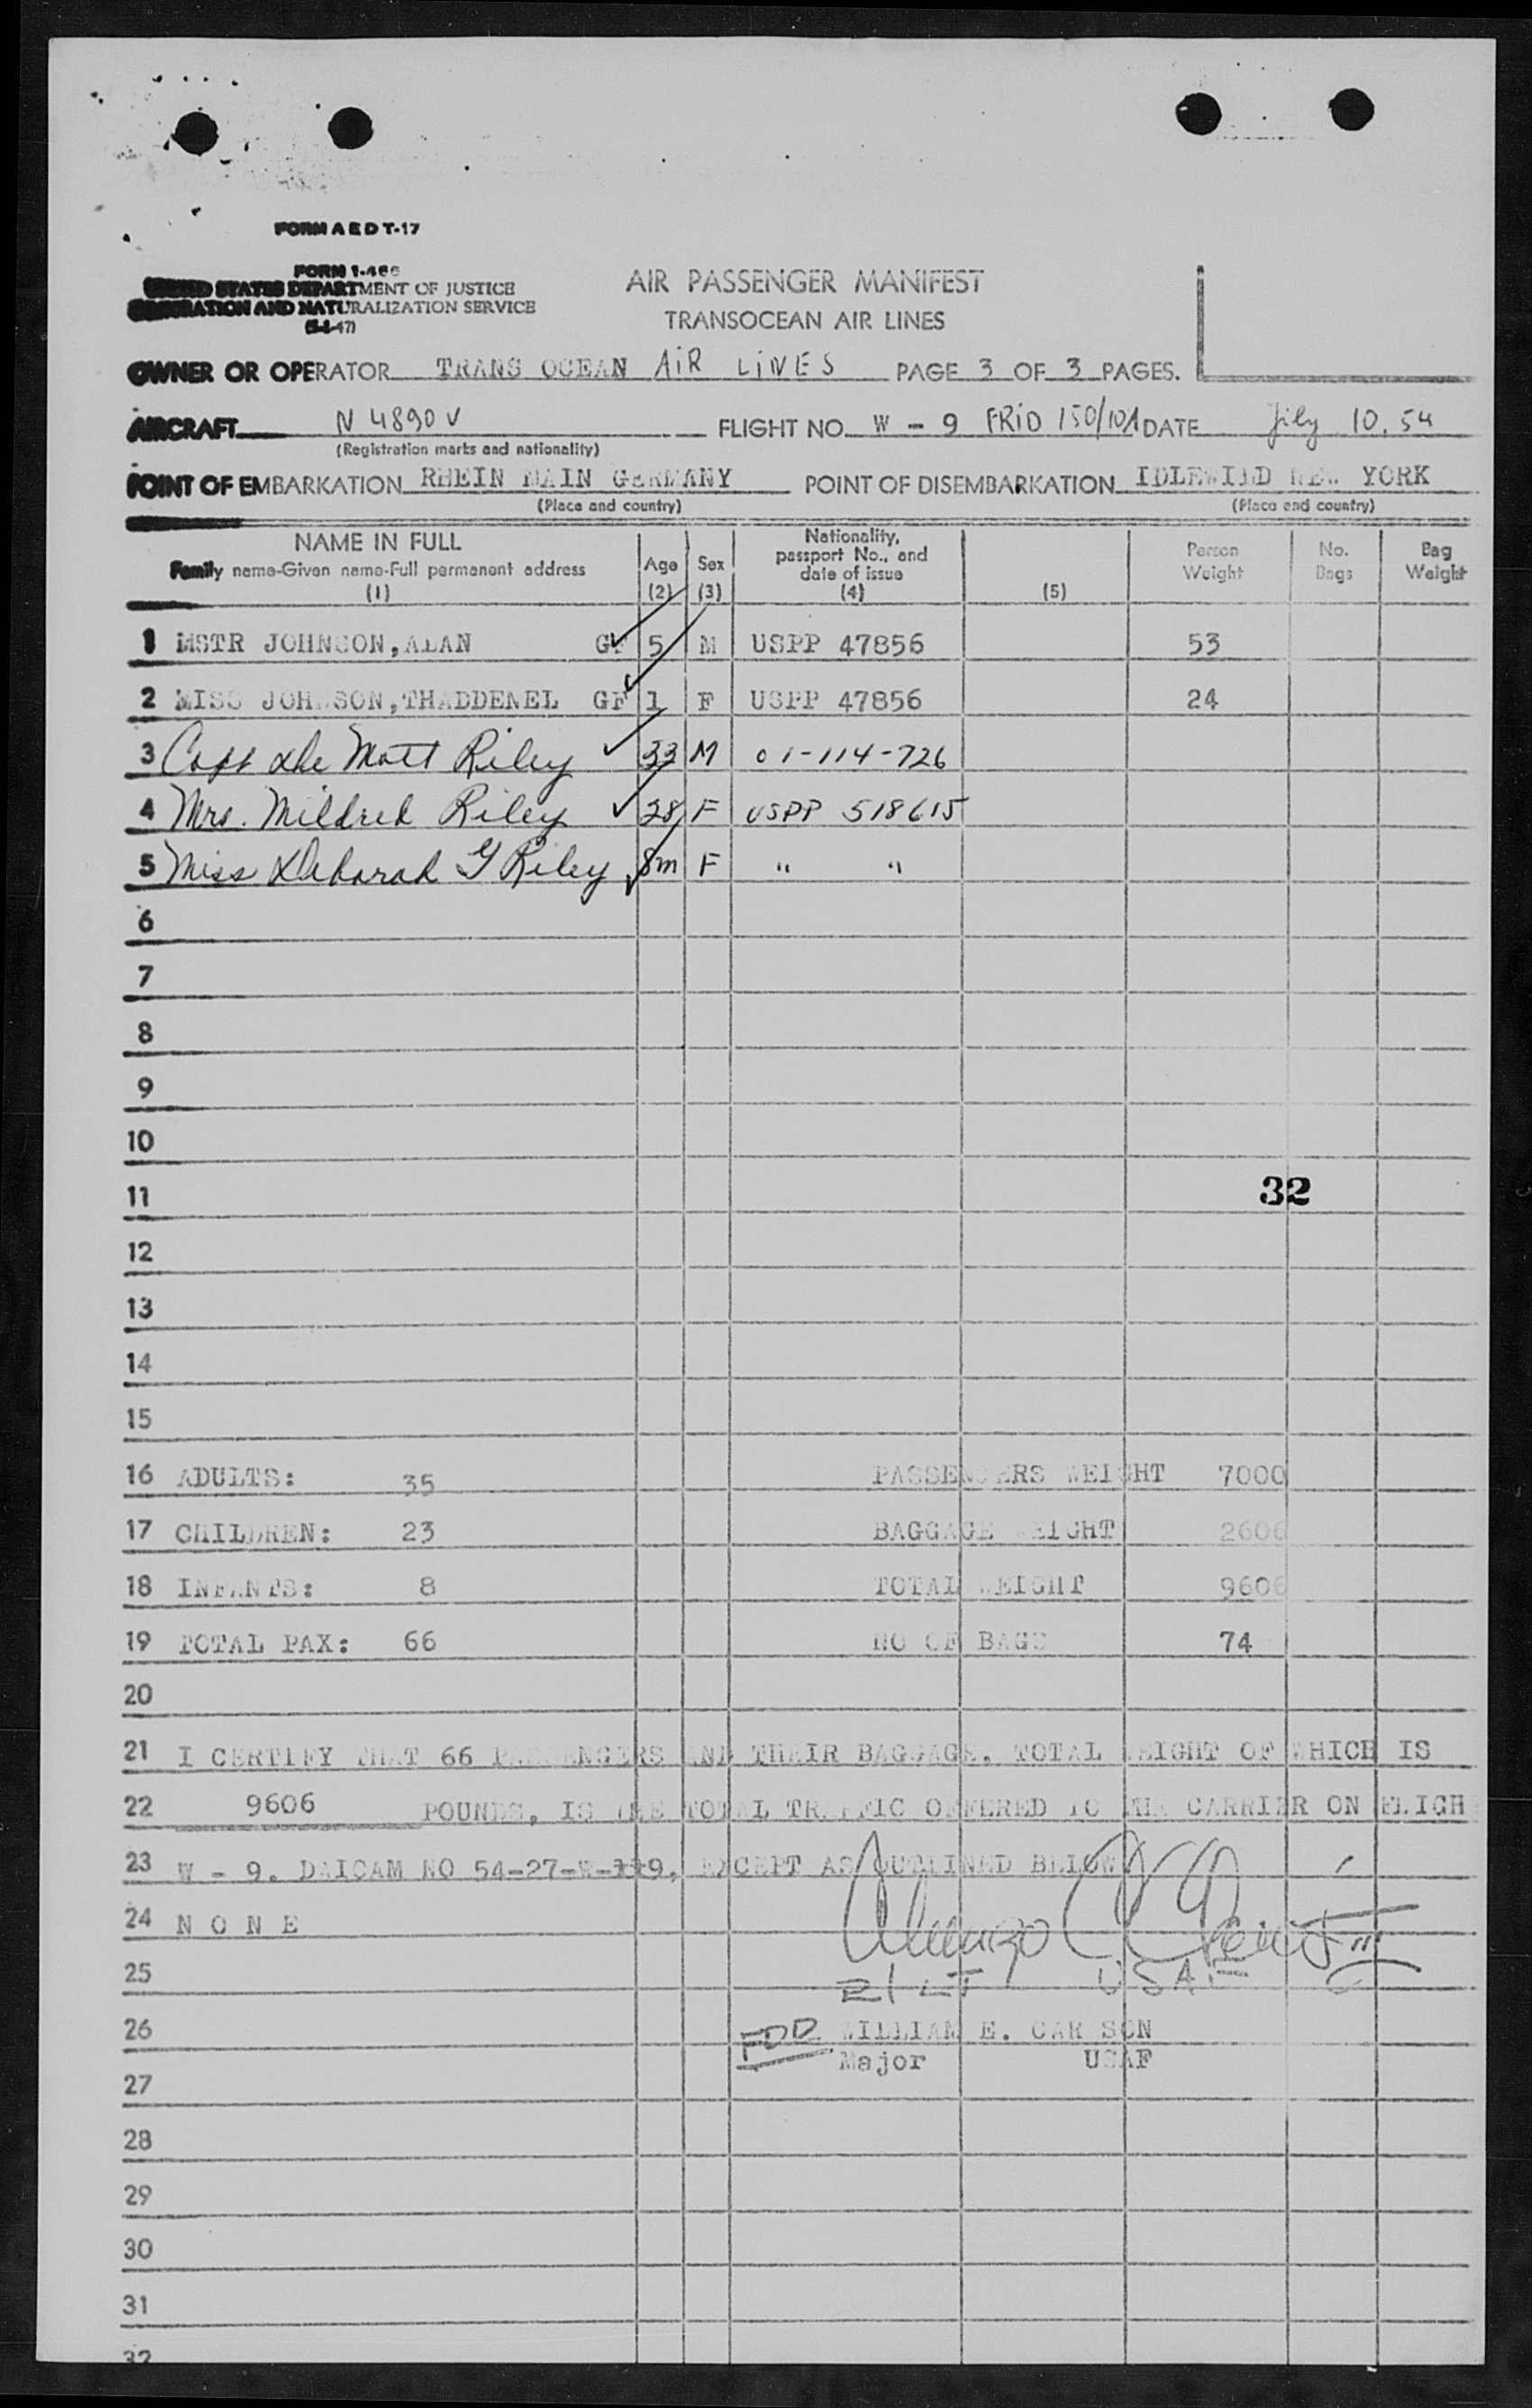 FORM A E D T-17
FORM 1-466
UNITED STATES DEPARTMENT OF JUSTICE
IMMIGRATION AND NATURALIZATION SERVICE
(5-1-47)
AIR PASSENGER MANIFEST
TRANSOCEAN AIR LINES
OWNER OR OPERATOR TRANS OCEAN AIR LINES PAGE 3 OF 3 PAGES.
AIRCRAFT N 4890 V FLIGHT NO. W - 9 FRID 150/101 DATE Jily 10. 54
(Registration marks and nationality)
POINT OF EMBARKATION RHEIN MAIN GERMANY POINT OF DISEMBARKATION IDLEWILD NEW YORK
(Place and country) (Place and country)
NAME IN FULL Family name-Given name-Full permanent address (1) Age (2) Sex (3) Nationality, passport No., and date of issue (4) (5) Person Weight No. Bags Bag Weight
1 MSTR JOHNSON, ALAN GF 5 M USPP 47856 53
2 MISS JOHNSON, THADDENEL GF 1 F USPP 47856 24
3 Capt Matt Riley 33 M 01-114-726
4 Mrs. Mildred Riley 28 F USPP 518615
5 Miss Deborah G Riley 8m F " "
6
7
8
9
10
11 32
12
13
14
15
16 ADULTS: 35 PASSENGERS WEIGHT 7000
17 CHILDREN: 23 BAGGAGE WEIGHT 2606
18 INFANTS: 8 TOTAL WEIGHT 9606
19 TOTAL PAX: 66 NO OF BAGS 74
20
21 I CERTIFY THAT 66 PASSENGERS AND THEIR BAGGAGE, TOTAL WEIGHT OF WHICH IS
22 9606 POUNDS, IS THE TOTAL TRAFFIC OFFERED TO THE CARRIER ON FLIGH
23 W - 9. DAICAM NO 54-27-W-119, EXCEPT AS OUTLINED BELOW
24 N O N E
25 2/LT USAF
26 FOR WILLIAM E. CARSON
Major USAF
27
28
29
30
31
32